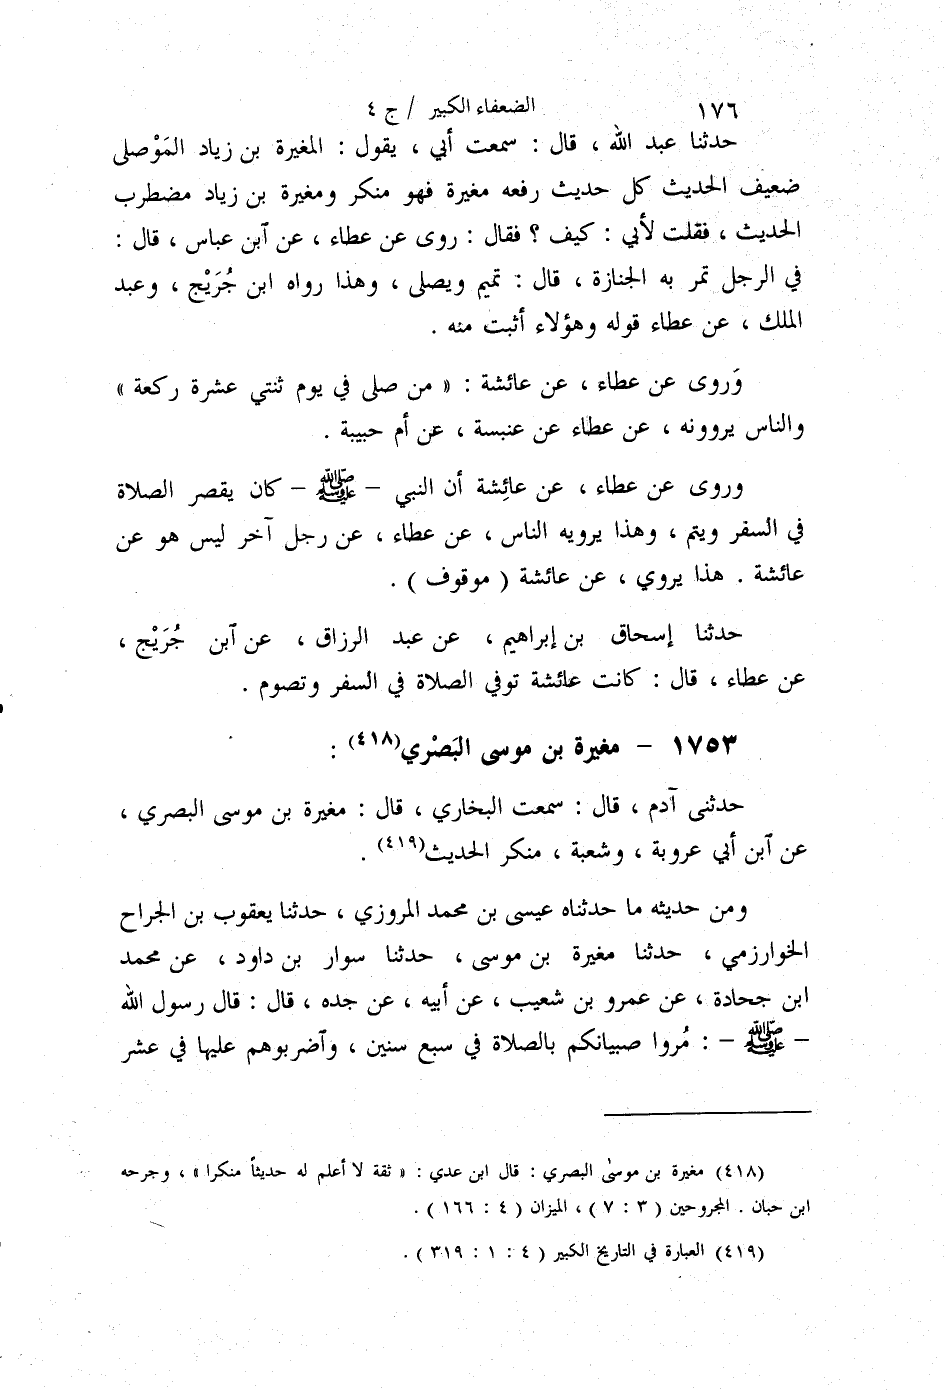 ١٧٦ الضعفاء الكبير / ج ٤
حدثنا عبد الله ، قال : سمعت أبي ، يقول : المغيرة بن زياد المَوْصلى
ضعيف الحديث كل حديث رفعه مغيرة فهو منكر ومغيرة بن زياد مضطرب
الحديث ، فقلت لأبي : كيف ؟ فقال : روى عن عطاء ، عن ٱبن عباس ، قال :
في الرجل تمر به الجنازة ، قال : تميم ويصلى ، وهذا رواه ابن جُرَيْج ، وعبد
الملك ، عن عطاء قوله وهؤلاء أثبت منه .
وَروى عن عطاء ، عن عائشة : « من صلى في يوم ثنتي عشرة ركعة »
والناس يروونه ، عن عطاء عن عنبسة ، عن أم حبيبة .
وروى عن عطاء ، عن عائِشة أن النبي – ﷺ – كان يقصر الصلاة
في السفر ويتم ، وهذا يرويه الناس ، عن عطاء ، عن رجل آخر ليس هو عن
عائشة . هذا يروي ، عن عائشة ( موقوف ) .
حدثنا إسحاق بن إبراهيم ، عن عبد الرزاق ، عن ٱبن جُرَيْج ،
عن عطاء ، قال : كانت عائشة توفي الصلاة في السفر وتصوم .
١٧٥٣ – مغيرة بن موسى البَصْري(٤١٨) :
حدثنى آدم ، قال : سمعت البخاري ، قال : مغيرة بن موسى البصري ،
عن ٱبن أبي عروبة ، وشعبة ، منكر الحديث(٤١٩) .
ومن حديثه ما حدثناه عيسى بن محمد المروزي ، حدثنا يعقوب بن الجراح
الخوارزمي ، حدثنا مغيرة بن موسى ، حدثنا سوار بن داود ، عن محمد
ابن جحادة ، عن عمرو بن شعيب ، عن أبيه ، عن جده ، قال : قال رسول الله
– ﷺ – : مُروا صبيانكم بالصلاة في سبع سنين ، وٱضربوهم عليها في عشر
(٤١٨) مغيرة بن موسىٰ البصري : قال ابن عدي : « ثقة لا أعلم له حديثاً منكرا » ، وجرحه
ابن حبان . المجروحين ( ٣ : ٧ ) ، الميزان ( ٤ : ١٦٦ ) .
(٤١٩) العبارة في التاريخ الكبير ( ٤ : ١ : ٣١٩ ) .